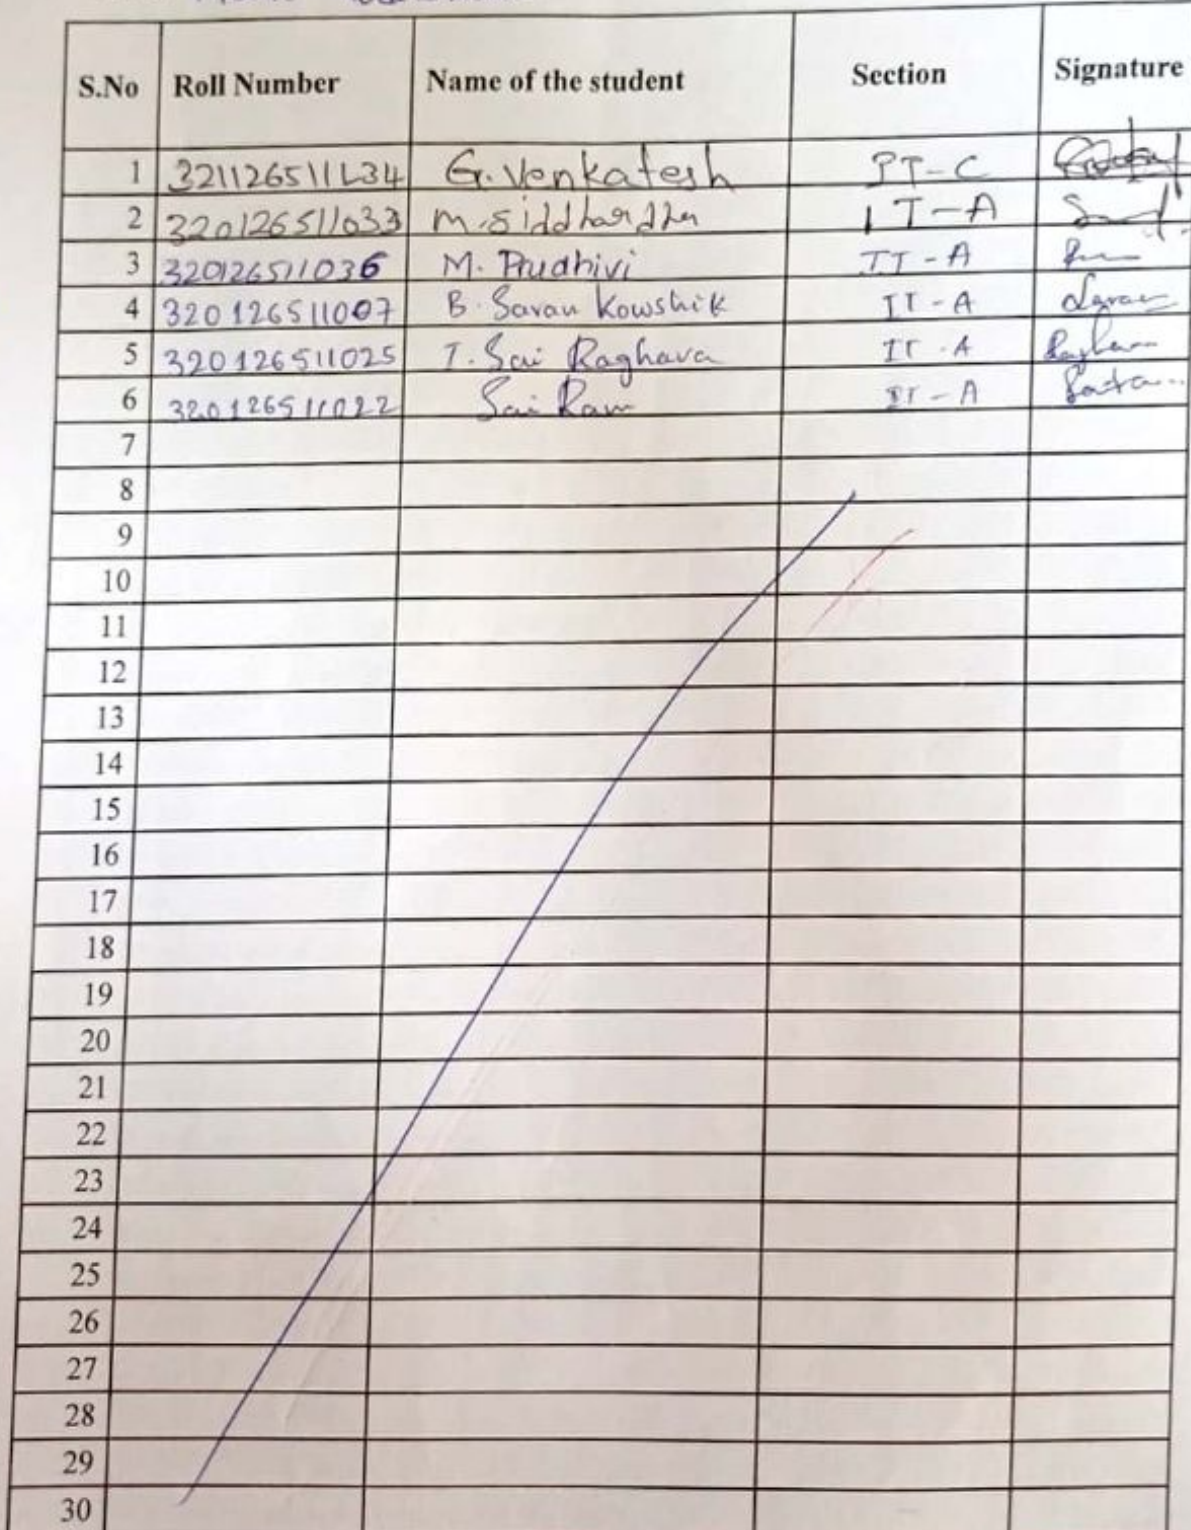 S.No Roll Number Name of the student Section Signature
1 321126511L34 G. Venkatesh IT-C
2 320126511033 M. Siddhardha IT-A
3 320126511036 M. Prudhivi IT-A
4 320126511007 B. Savan Kowshik IT-A
5 320126511025 T. Sai Raghava IT-A
6 320126511022 Sai Ram IT-A
7
8
9
10
11
12
13
14
15
16
17
18
19
20
21
22
23
24
25
26
27
28
29
30